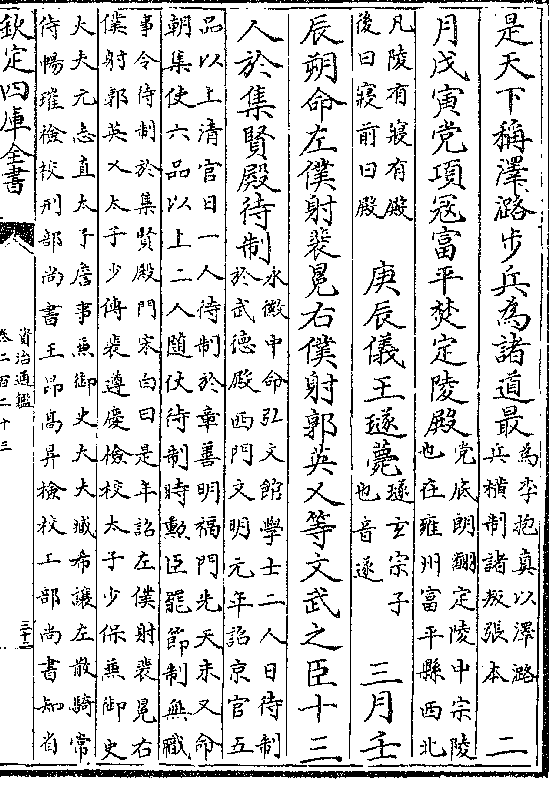 是天下稱澤潞步兵為諸道最為李抱真以澤潞兵横制諸叛張本 二
月戊寅党項冦富平焚定陵殿党底朗翻定陵中宗陵也在雍州富平縣西北
凡陵有寢有殿後曰寢前曰殿 庚辰儀王璲薨璲玄宗子也音遂 三月壬
辰朔命左僕射裴冕右僕射郭英乂等文武之臣十三
人於集賢殿待制永徽中命弘文館學士二人日待制於武德殿西門文明元年詔京官五
品以上清官日一人待制於章善明福門先天末又命朝集使六品以上二人随仗待制時勲臣罷節制無職
事令待制於集賢殿門宋白曰是年詔左僕射裴冕右僕射郭英乂太子少傅裴遵慶檢校太子少保兼御史
大夫元志直太子詹事兼御史大夫臧希讓左散騎常侍暢璀檢校刑部尚書王昂高昇檢校工部尚書知省
欽定四庫全書
資治通鑑
卷二百二十三
三十二